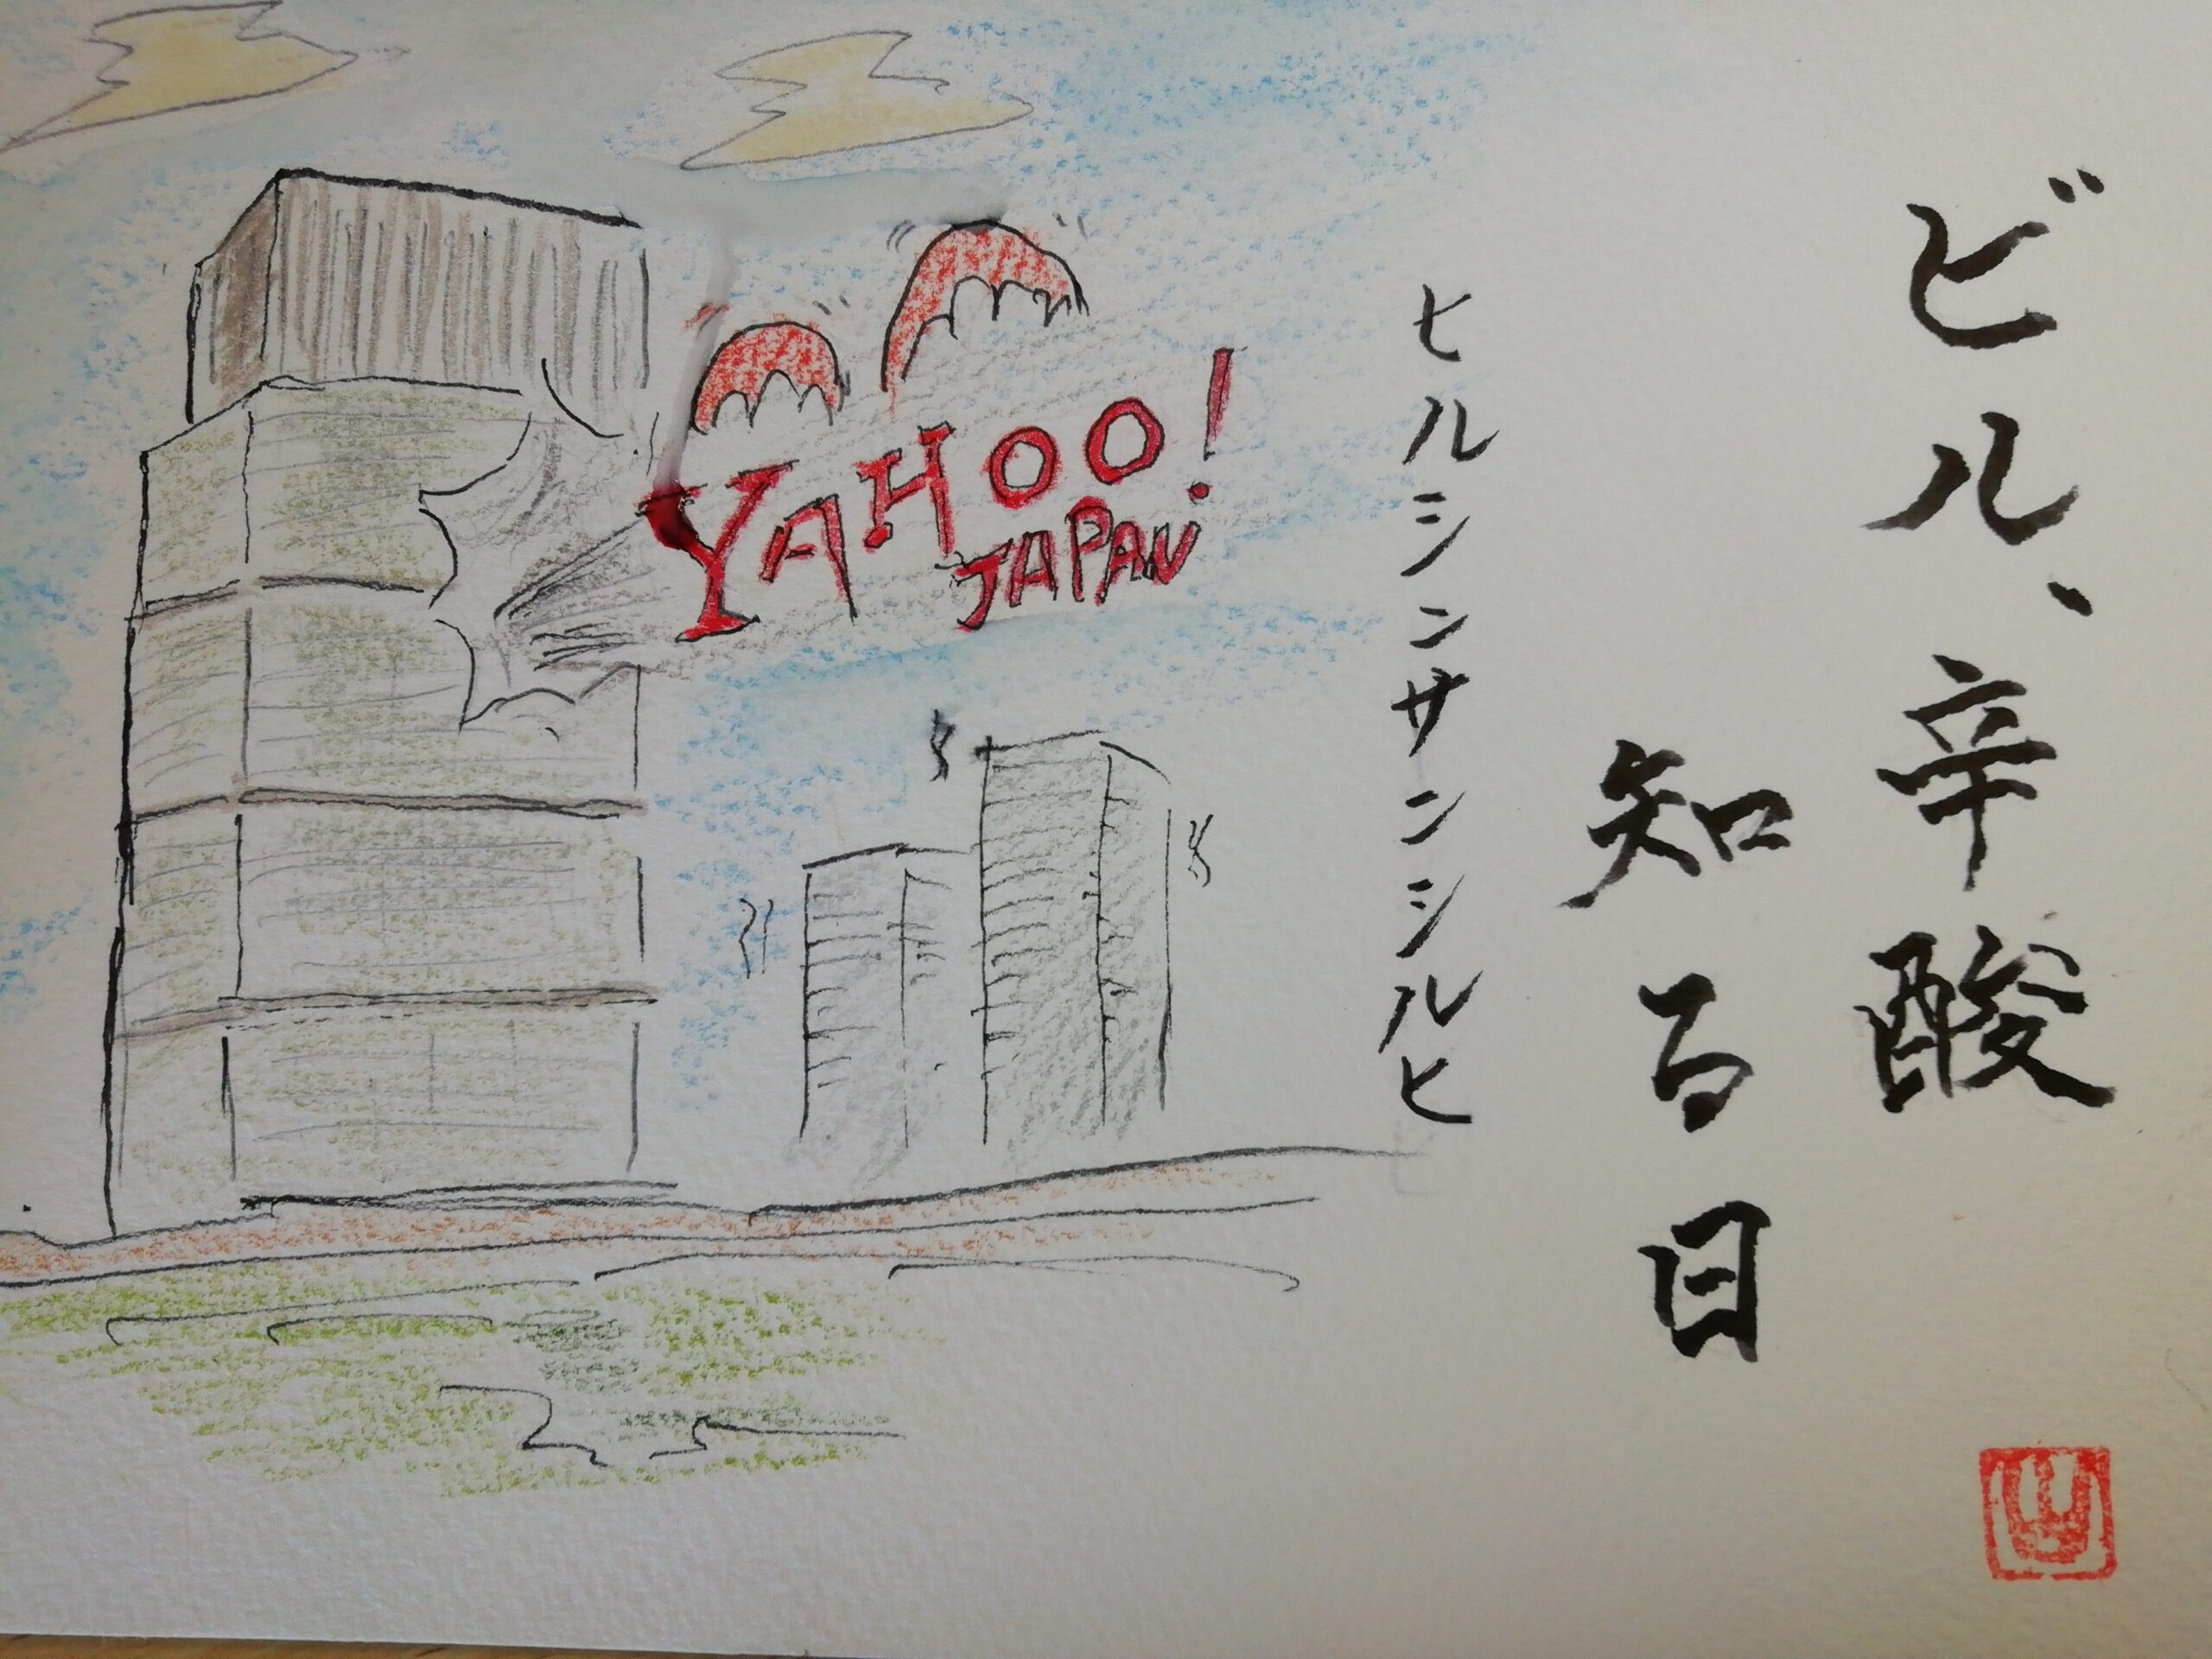 ビル、辛酸
知る日
ヒルシンサンシルヒ
YAHOO!
JAPAN